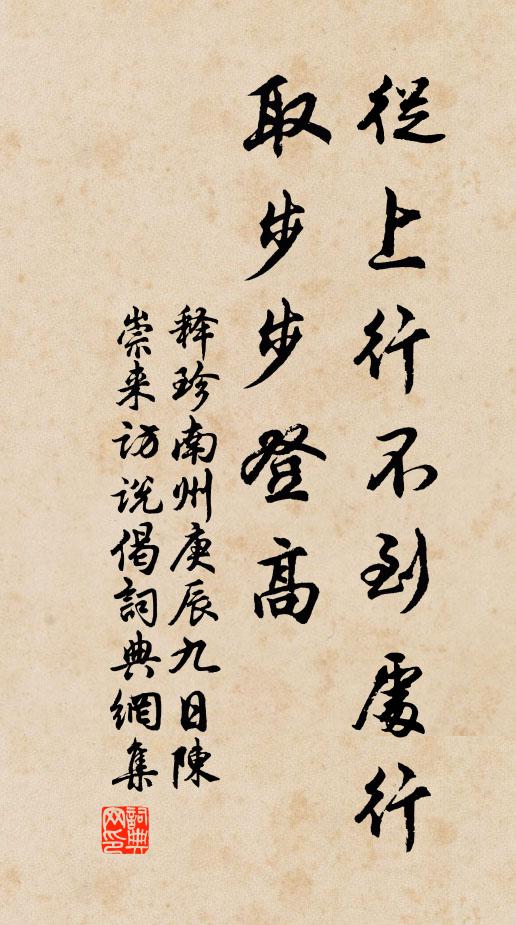 從上行不到處行
取步步登高
释珍南州庚辰九日陳
崇来访説偈詞典網集
詞典
网印